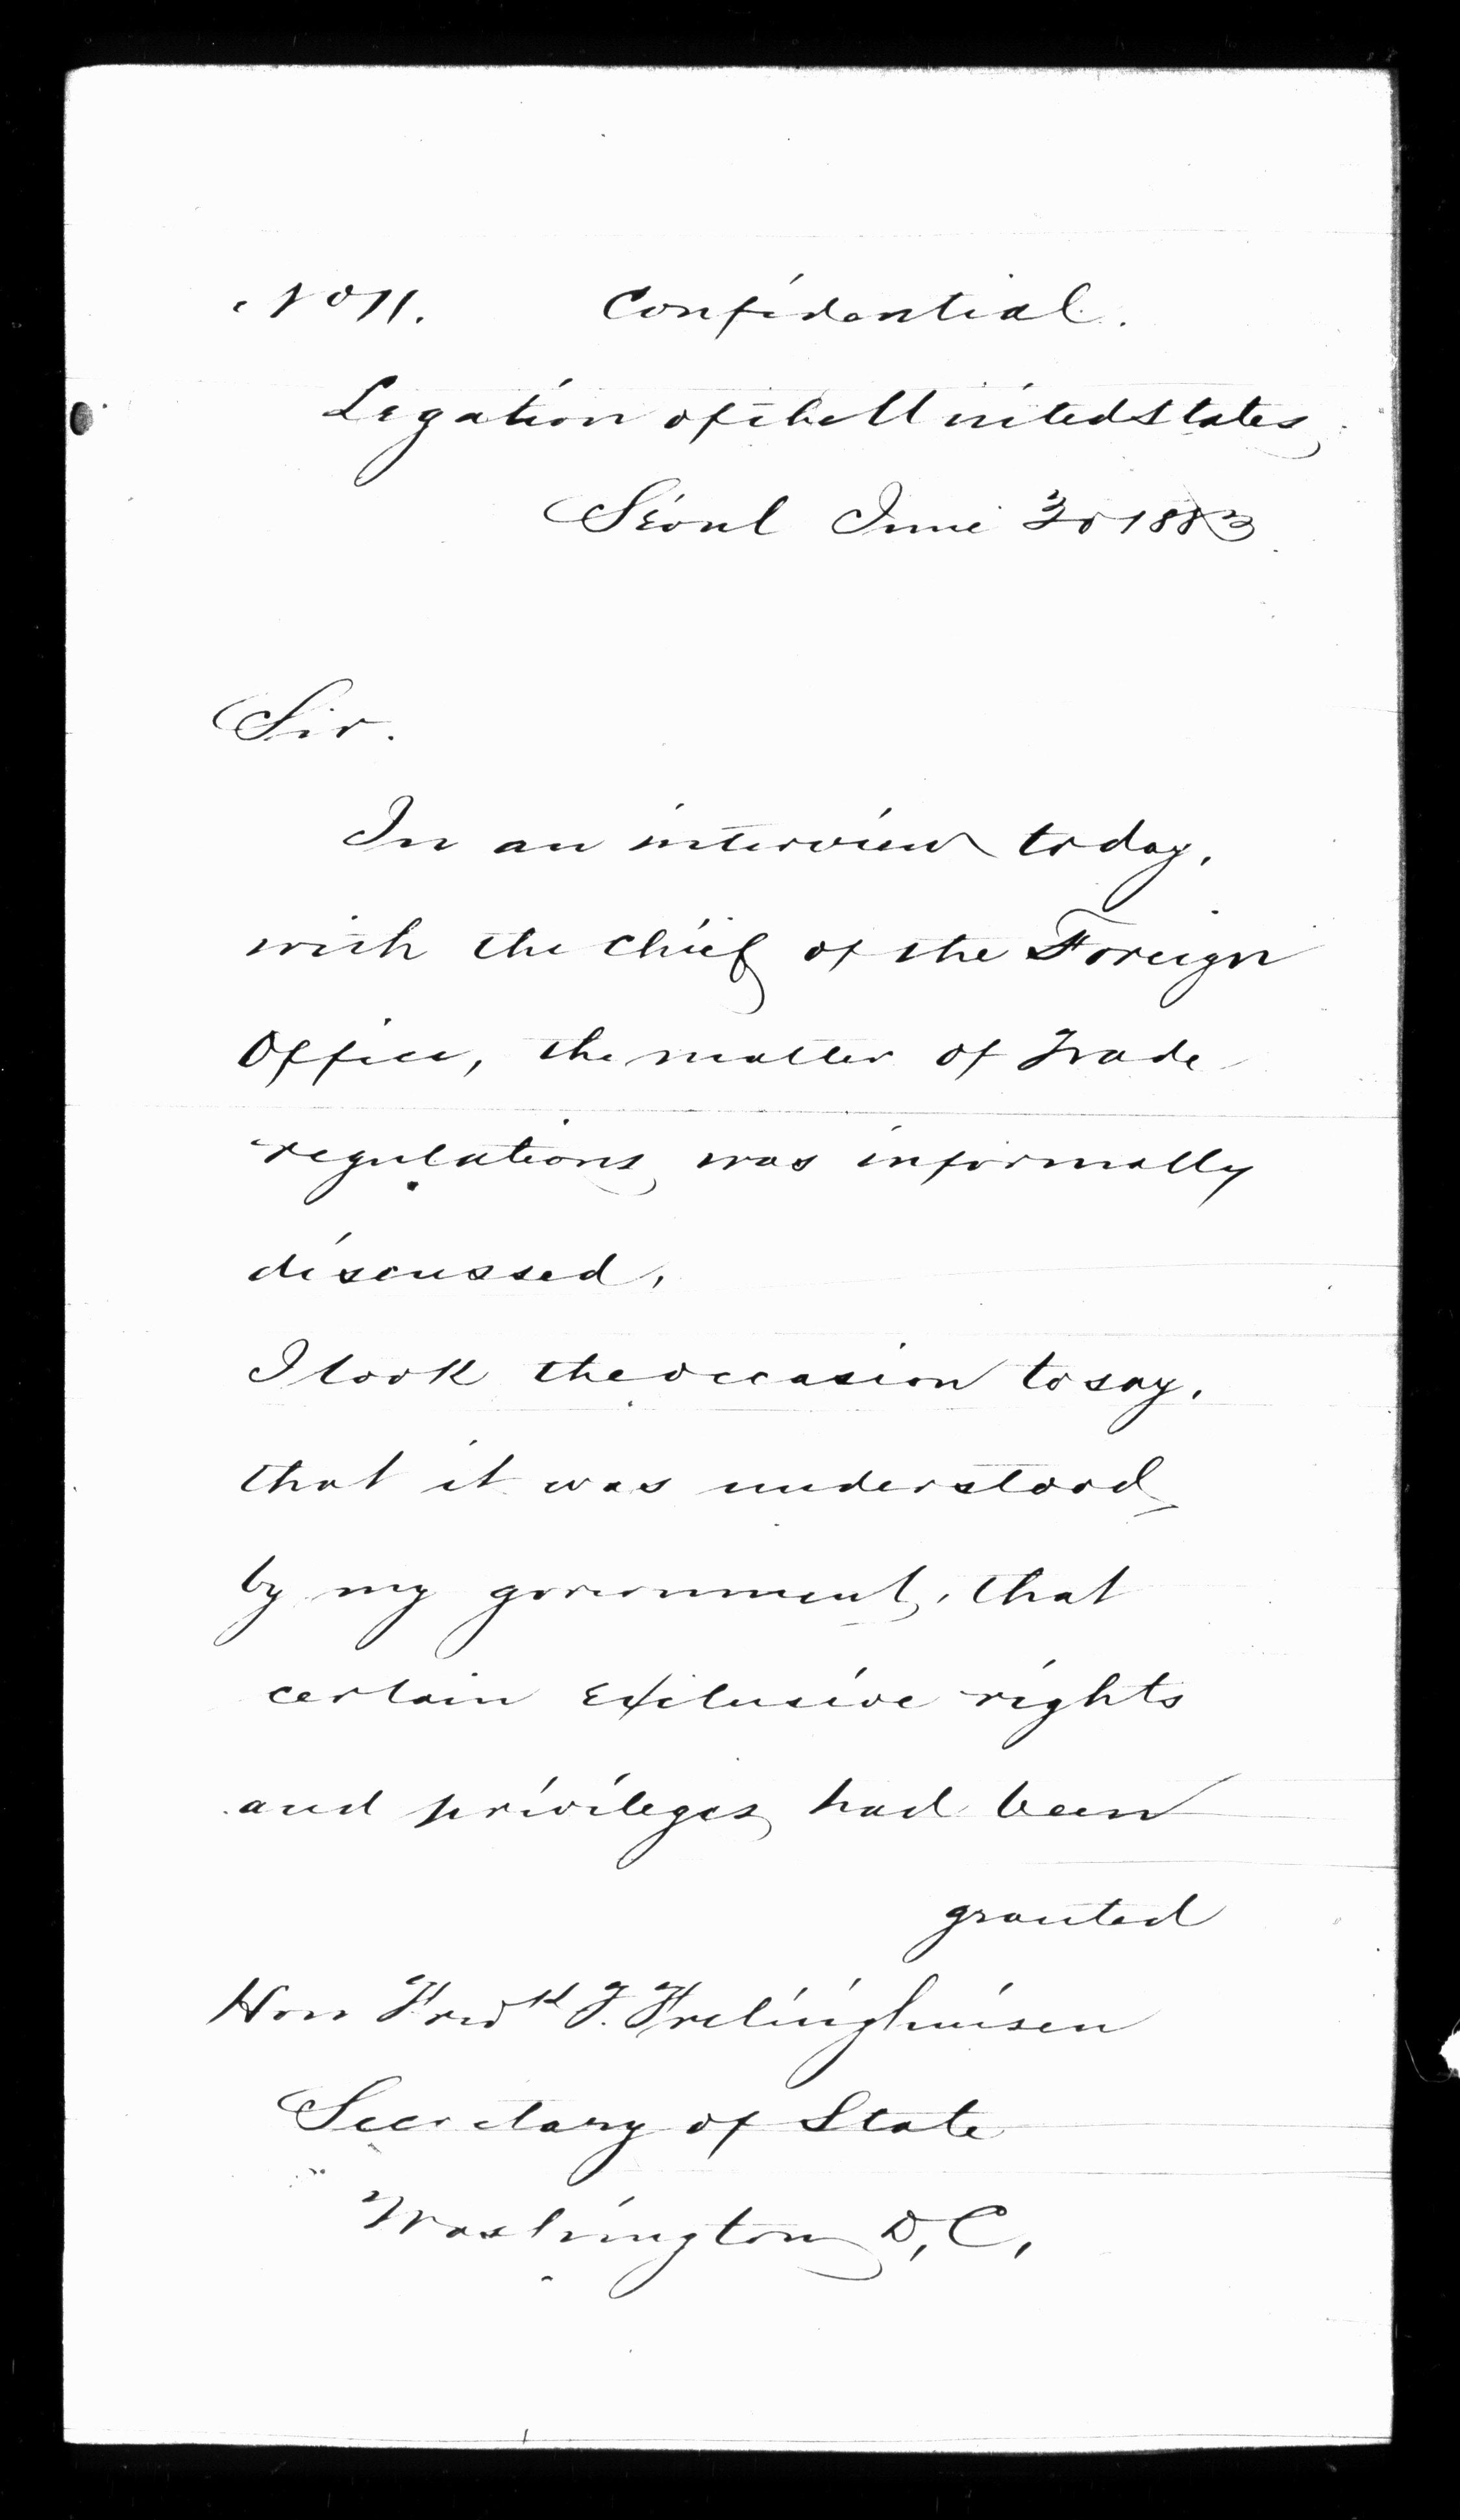 No 11. Confidential.
Legation of the United States
Séoul June 30 1883
Sir.
In an interview today,
with the Chief of the Foreign
Office, the matter of Trade
regulations was informally
discussed,
I took the occasion to say,
that it was understood
by my government, that
certain exclusive rights
and privileges had been
granted
Hon Fredk T. Frelinghuisen
Secretary of State
Washington D, C,